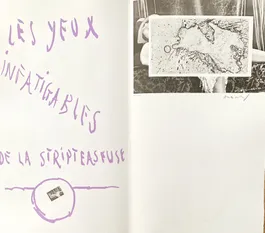 LES YEUX
INFATIGABLES
DE LA STRIPTEASEUSE